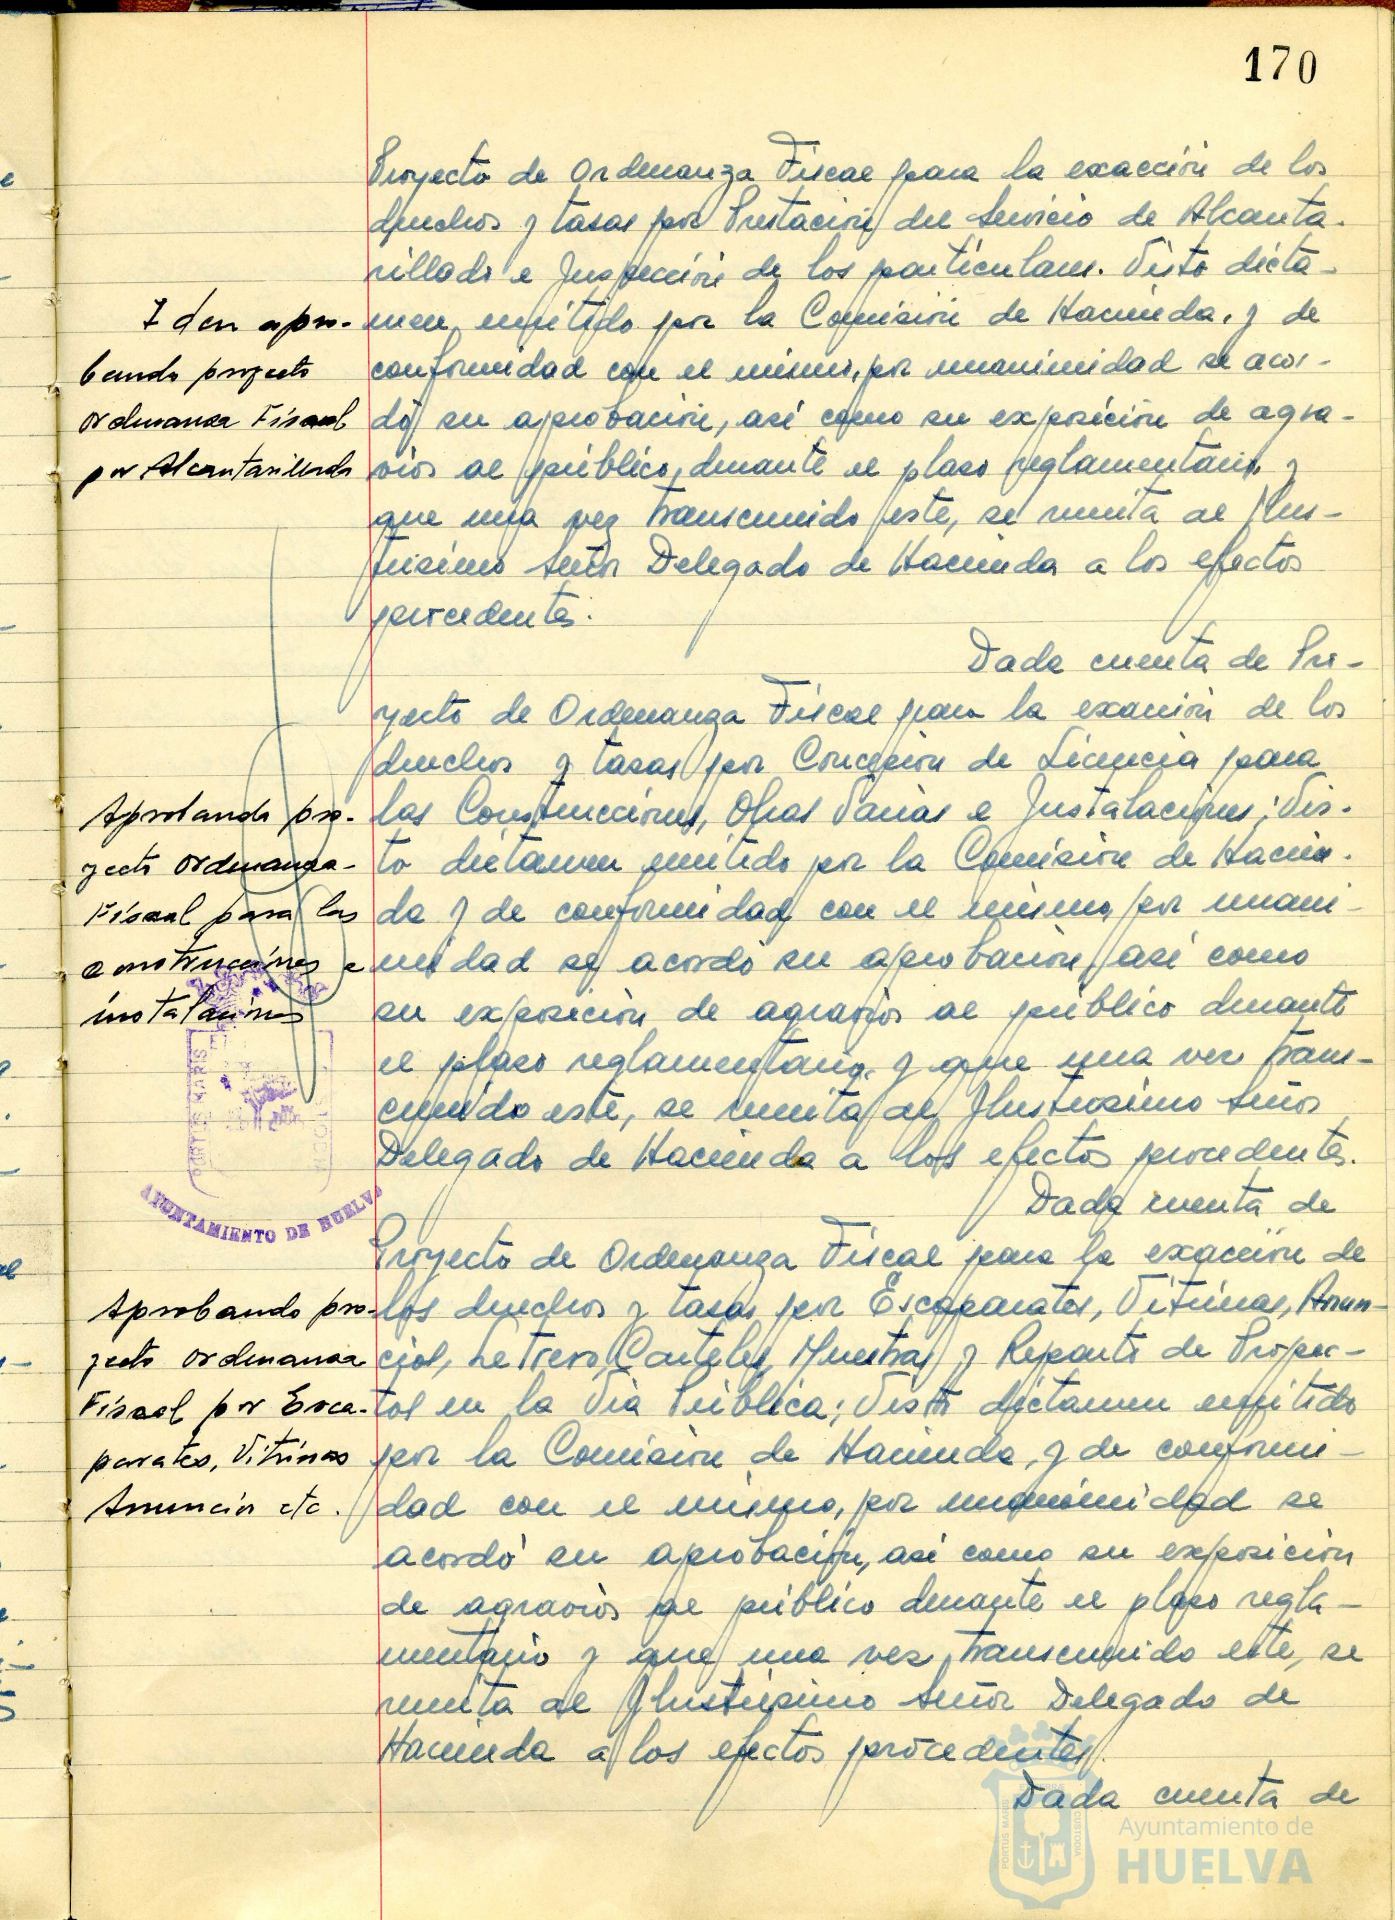 170
Proyecto de Ordenanza Fiscal para la exacción de los
derechos y tasas por Prestación del Servicio de Alcanta-
rillado e Inspección de los particulares. Visto dicta-
Iden apro-
bando proyecto
ordenanza Fiscal
por Alcantarillado
men emitido por la Comisión de Hacienda, y de
conformidad con el mismo, por unanimidad se acor-
dó su aprobación, así como su exposición de agra-
vios al público, durante el plazo reglamentario, y
que una vez transcurrido este, se remita al Ilus-
trísimo Señor Delegado de Hacienda a los efectos
procedentes.
Dada cuenta de Pro-
yecto de Ordenanza Fiscal para la exacción de los
derechos y tasas por Concesión de Licencia para
Aprobando pro-
yecto ordenanza
Fiscal para las
construcciones e
instalaciones
las Construcciones, Obras Varias e Instalaciones; Vis-
to dictamen emitido por la Comisión de Hacien-
da y de conformidad con el mismo, por unani-
midad se acordó su aprobación, así como
su exposición de agravios al público durante
el plazo reglamentario, y que una vez trans-
currido este, se remita al Ilustrísimo Señor
Delegado de Hacienda a los efectos procedentes.
PORTUS MARIS
AYUNTAMIENTO DE HUELVA
Dada cuenta de
Proyecto de Ordenanza Fiscal para la exacción de
Aprobando pro-
yecto ordenanza
Fiscal por Esca-
parates, Vitrinas
Anuncios etc.
los derechos y tasas por Escaparates, Vitrinas, Anun-
cios, Letreros, Carteles, Muestras y Reparto de Prospec-
tos en la Vía Pública; Visto dictamen emitido
por la Comisión de Hacienda, y de conformi-
dad con el mismo, por unanimidad se
acordó su aprobación, así como su exposición
de agravios al público durante el plazo regla-
mentario y que una vez transcurrido este, se
remita al Ilustrísimo Señor Delegado de
Hacienda a los efectos procedentes.
Dada cuenta de
PORTUS MARIS
CUSTODIA
Ayuntamiento de
HUELVA